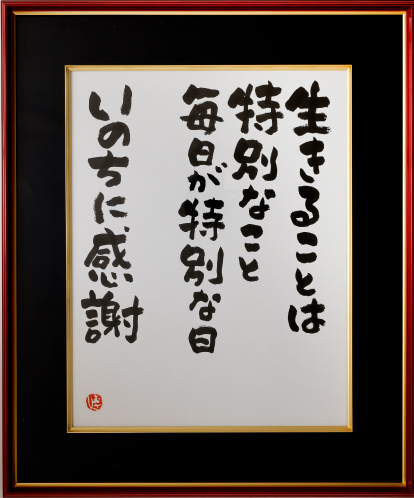 生きることは
特別なこと
毎日が特別な日
いのちに感謝